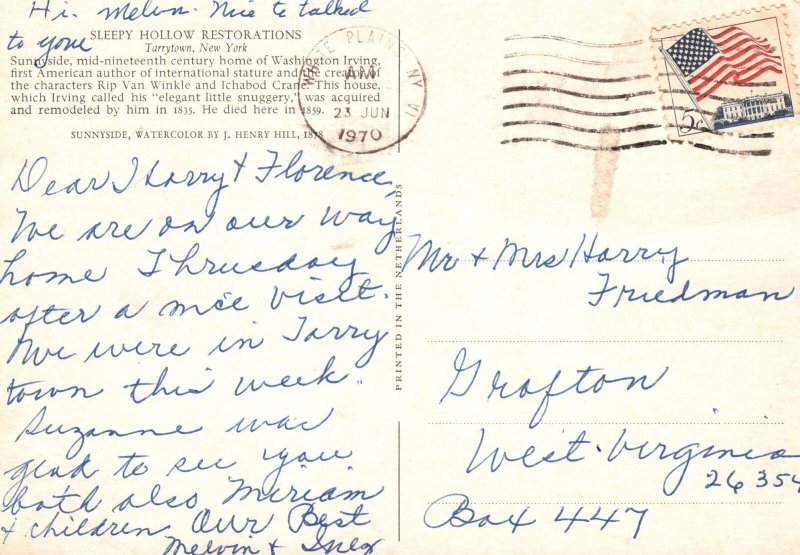 Hi. Melvin. Nice to talked
to you
SLEEPY HOLLOW RESTORATIONS
Tarrytown, New York
Sunnyside, mid-nineteenth century home of Washington Irving,
first American author of international stature and the creator of
the characters Rip Van Winkle and Ichabod Crane. This house,
which Irving called his "elegant little snuggery," was acquired
and remodeled by him in 1835. He died here in 1859.
SUNNYSIDE, WATERCOLOR BY J. HENRY HILL, 1878
Dear Harry & Florence,
We are on our way
home Thrusday
after a nice visit.
We were in Tarry
town this week.
Suzanne was
glad to see you
both also Miriam
& children. Our Best
Melvin & Inez
PRINTED IN THE NETHERLANDS
WHITE PLAINS NY
AM
23 JUN
1970
1A
5c
Mr & Mrs Harry
Friedman
Grafton
West. Virginia
26354
Box 447